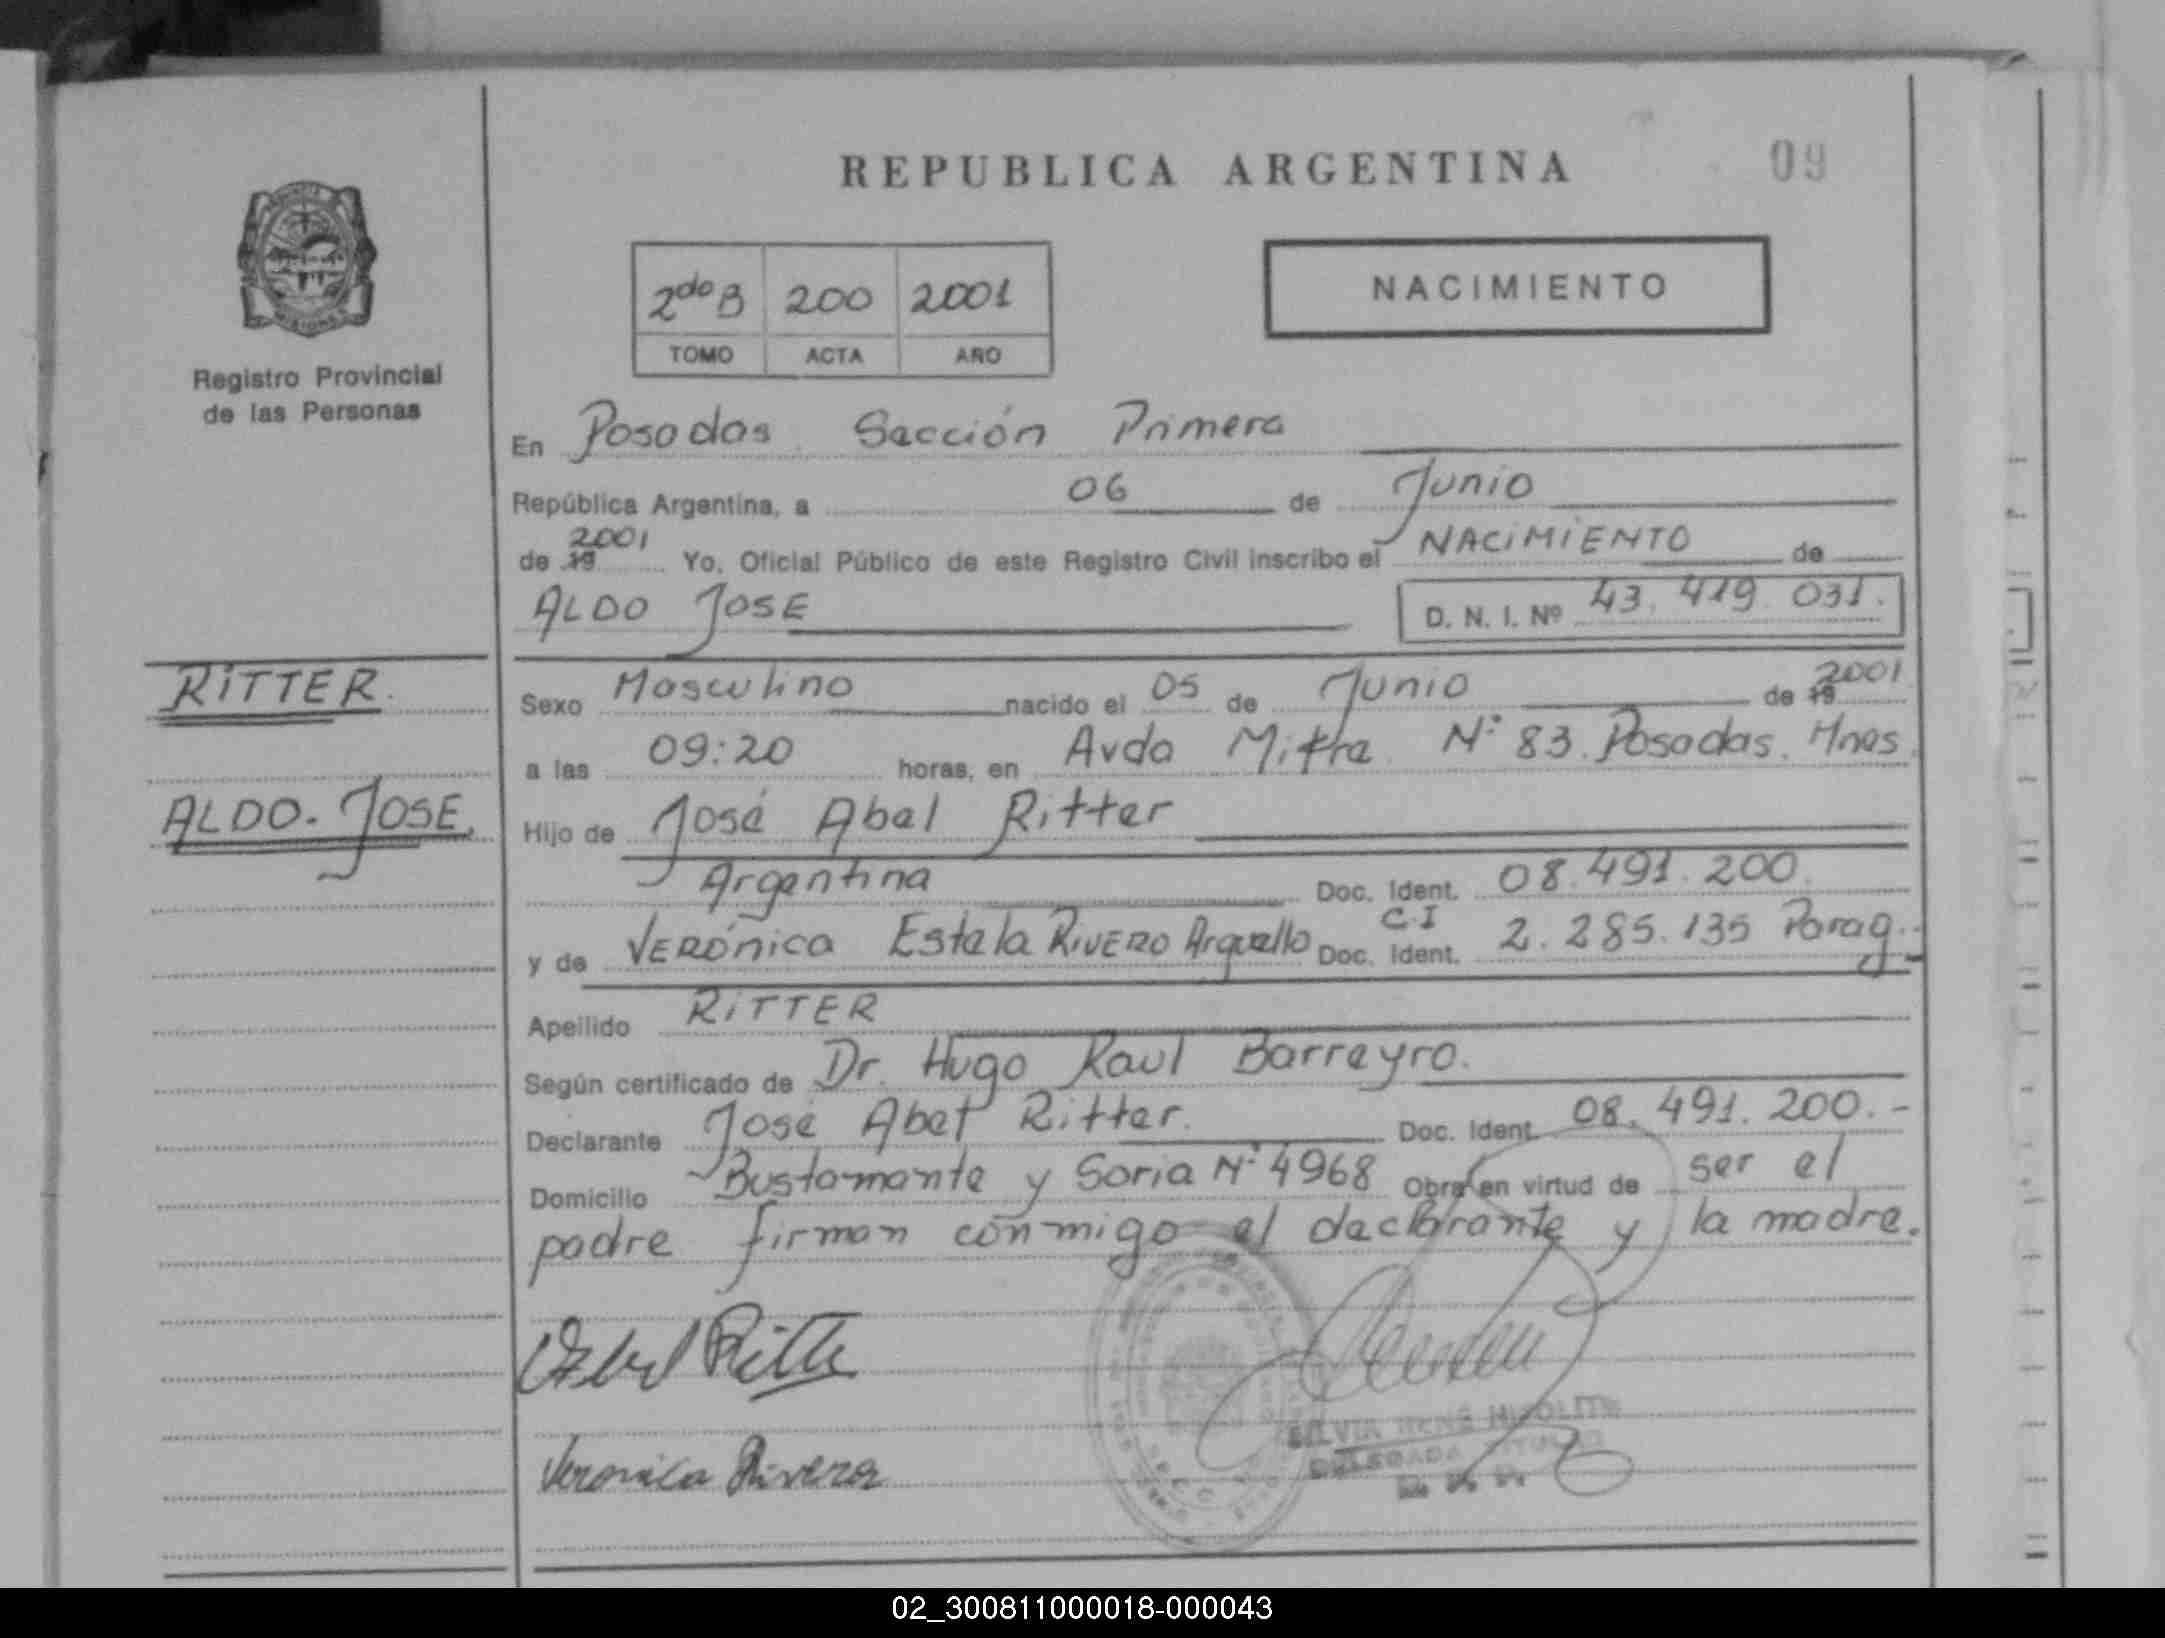 REPUBLICA ARGENTINA
09
NACIMIENTO
2do B 200 2001
TOMO ACTA AÑO
Registro Provincial
de las Personas
En Posadas Sección Primera
República Argentina, a 06 de Junio
de 19 2001 Yo, Oficial Público de este Registro Civil inscribo el NACIMIENTO de
ALDO JOSE D. N. I. Nº 43.419.031.
RITTER.
Sexo Masculino nacido el 05 de Junio de 19 2001
a las 09:20 horas, en Avda Mitre Nº 83. Posadas. Mnes.
ALDO. JOSE.
Hijo de José Abel Ritter
Argentina Doc. Ident. 08.491.200.
y de VERÓNICA Estela RIVERO Arguello C.I Doc. Ident. 2.285.135 Parag.-
Apellido RITTER
Según certificado de Dr. Hugo Raul Barreyro.
Declarante José Abel Ritter. Doc. Ident. 08.491.200.-
Domicilio Bustamante y Soria Nº 4968 Obra en virtud de ser el
padre firman conmigo el declarante y la madre.
Abel Ritter
Veronica Rivero
SILVIA RENÉ HIPOLITO
DELEGADA TITULAR
R. P. P.
MISIONES
02_300811000018-000043